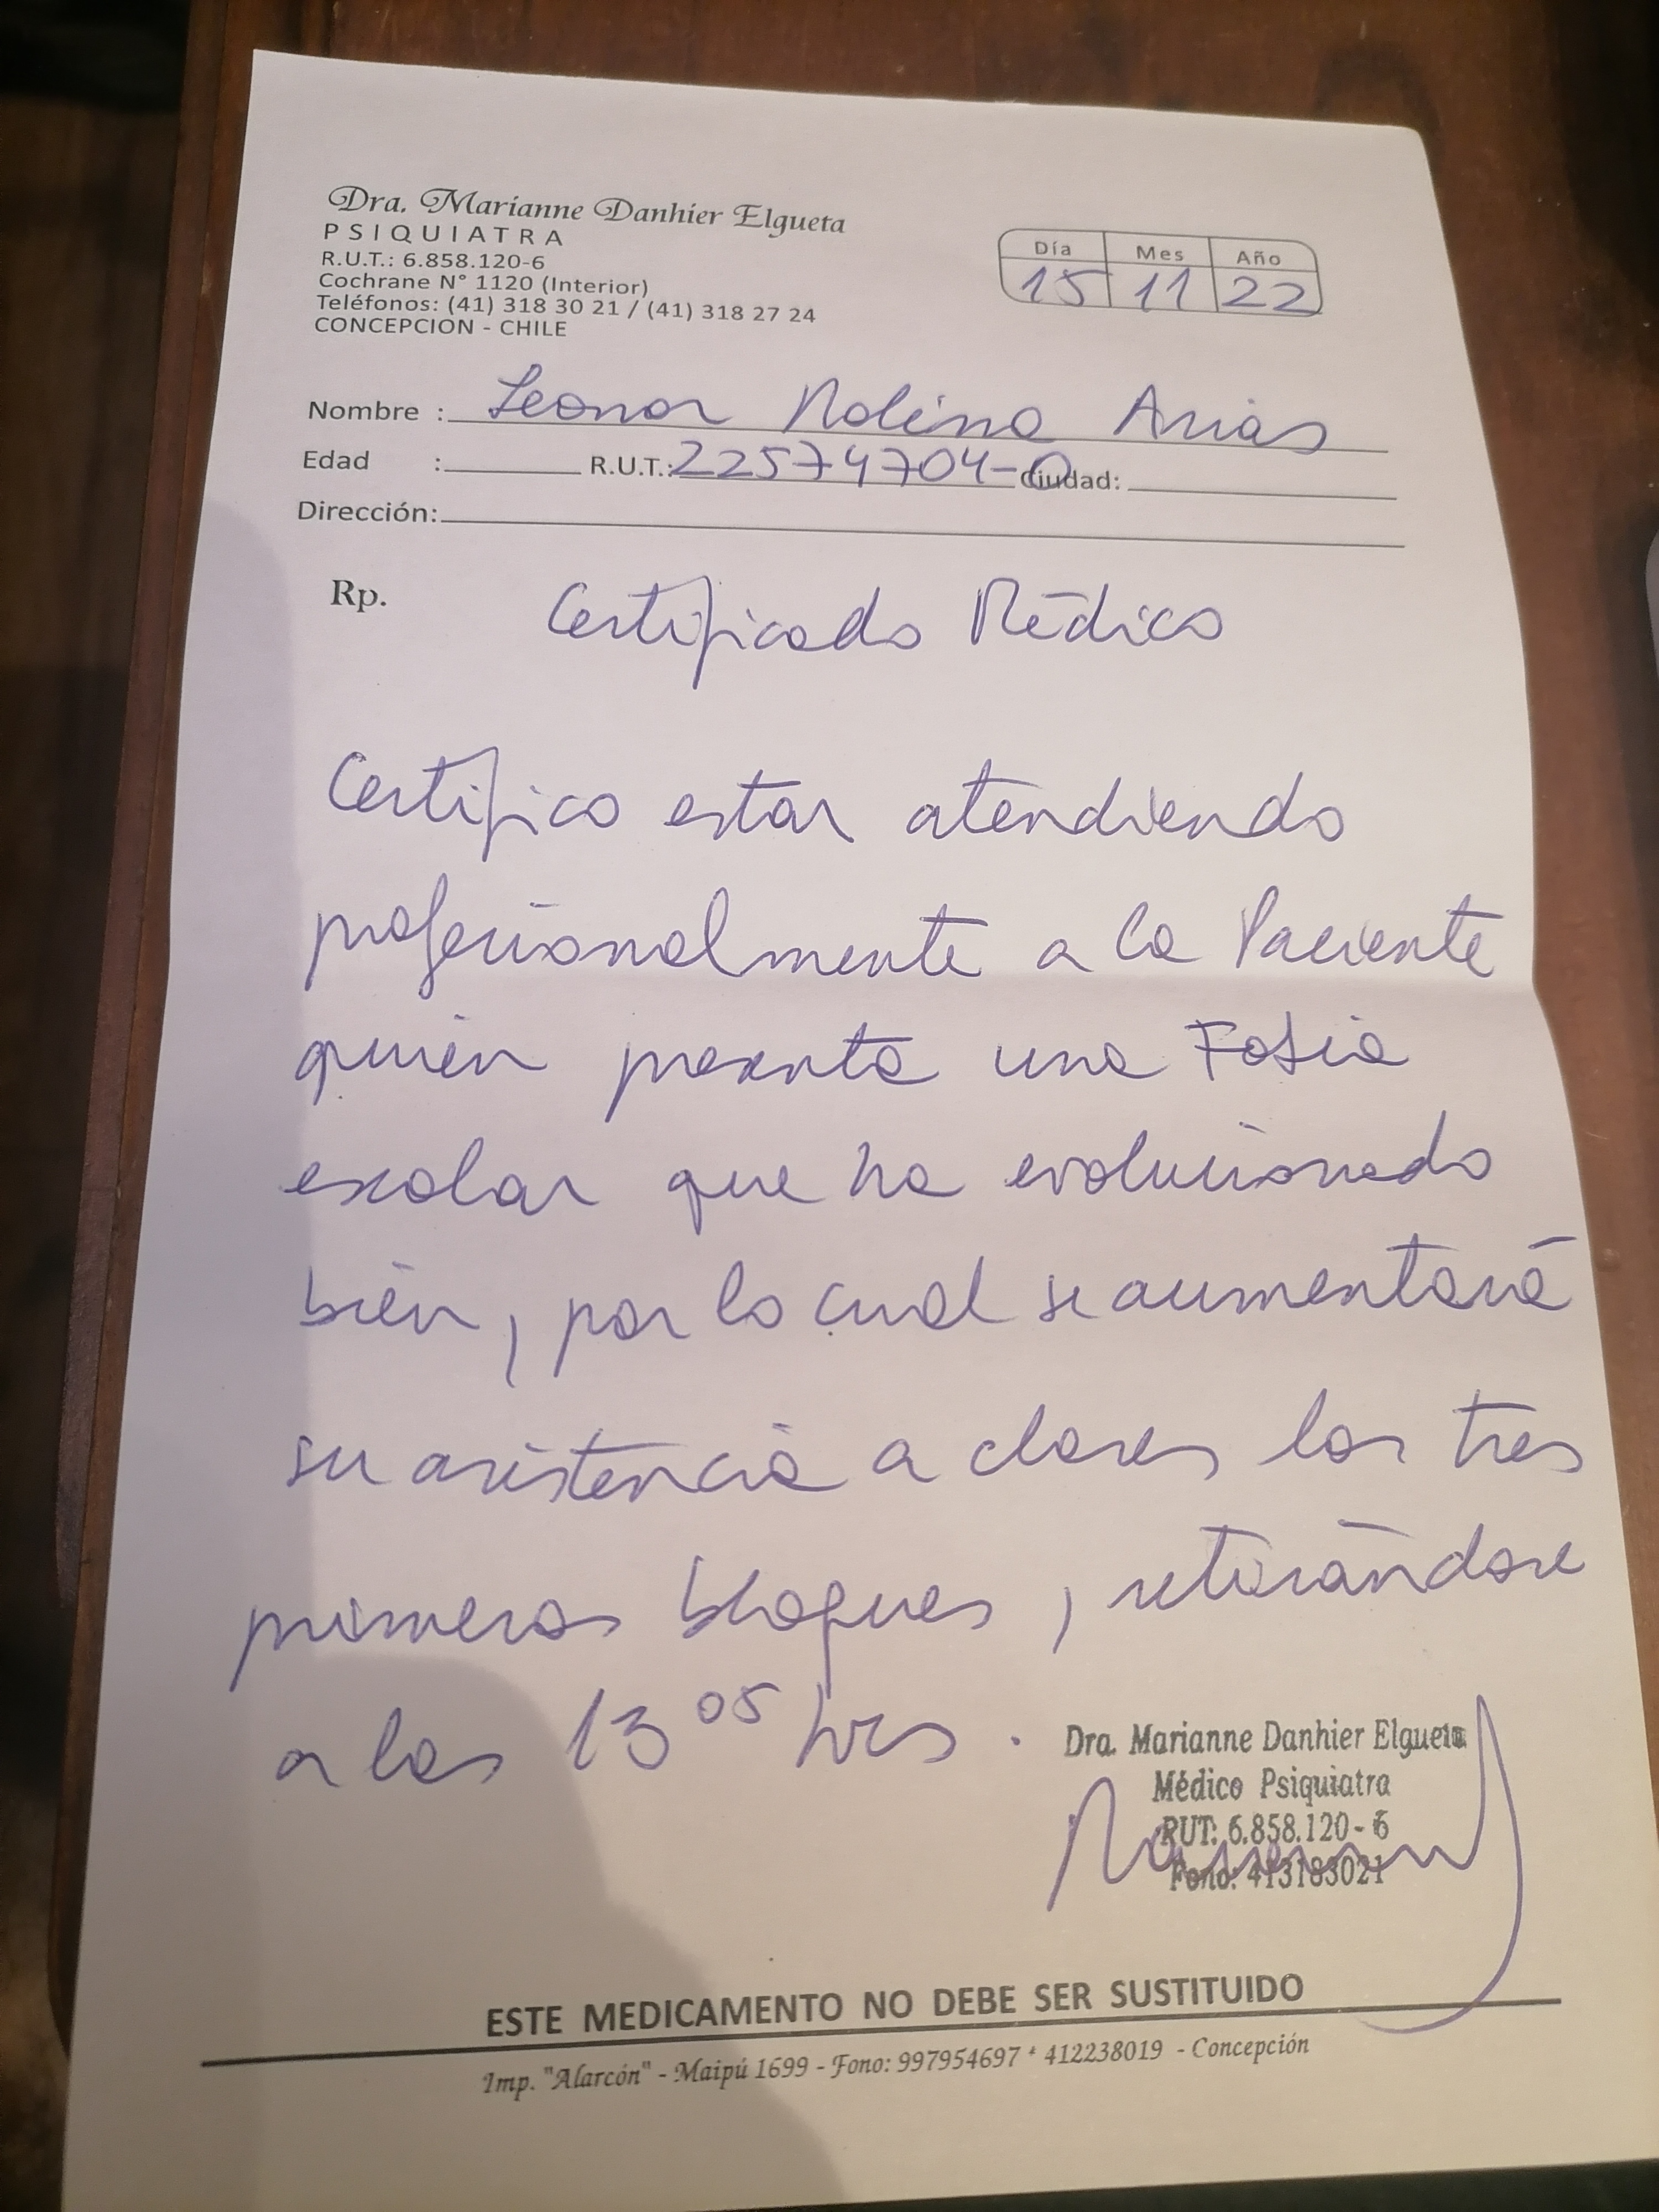 Dra. Marianne Danhier Elgueta
PSIQUIATRA
R.U.T.: 6.858.120-6
Cochrane N° 1120 (Interior)
Teléfonos: (41) 318 30 21 / (41) 318 27 24
CONCEPCION - CHILE
Día Mes Año
15 11 22
Nombre : Leonor Molina Arias
Edad : R.U.T.: 22574704-0 Ciudad:
Dirección:
Rp. Certificado Médico
Certifico estar atendiendo
profesionalmente a la Paciente
quien presenta una Fobia
escolar que ha evolucionado
bien, por lo cual se aumentará
su asistencia a clases los tres
primeros bloques, retirándose
a las 13 05 hrs.
Dra. Marianne Danhier Elgueta
Médico Psiquiatra
RUT: 6.858.120-6
Fono: 413183021
ESTE MEDICAMENTO NO DEBE SER SUSTITUIDO
Imp. "Alarcón" - Maipú 1699 - Fono: 997954697 * 412238019 - Concepción